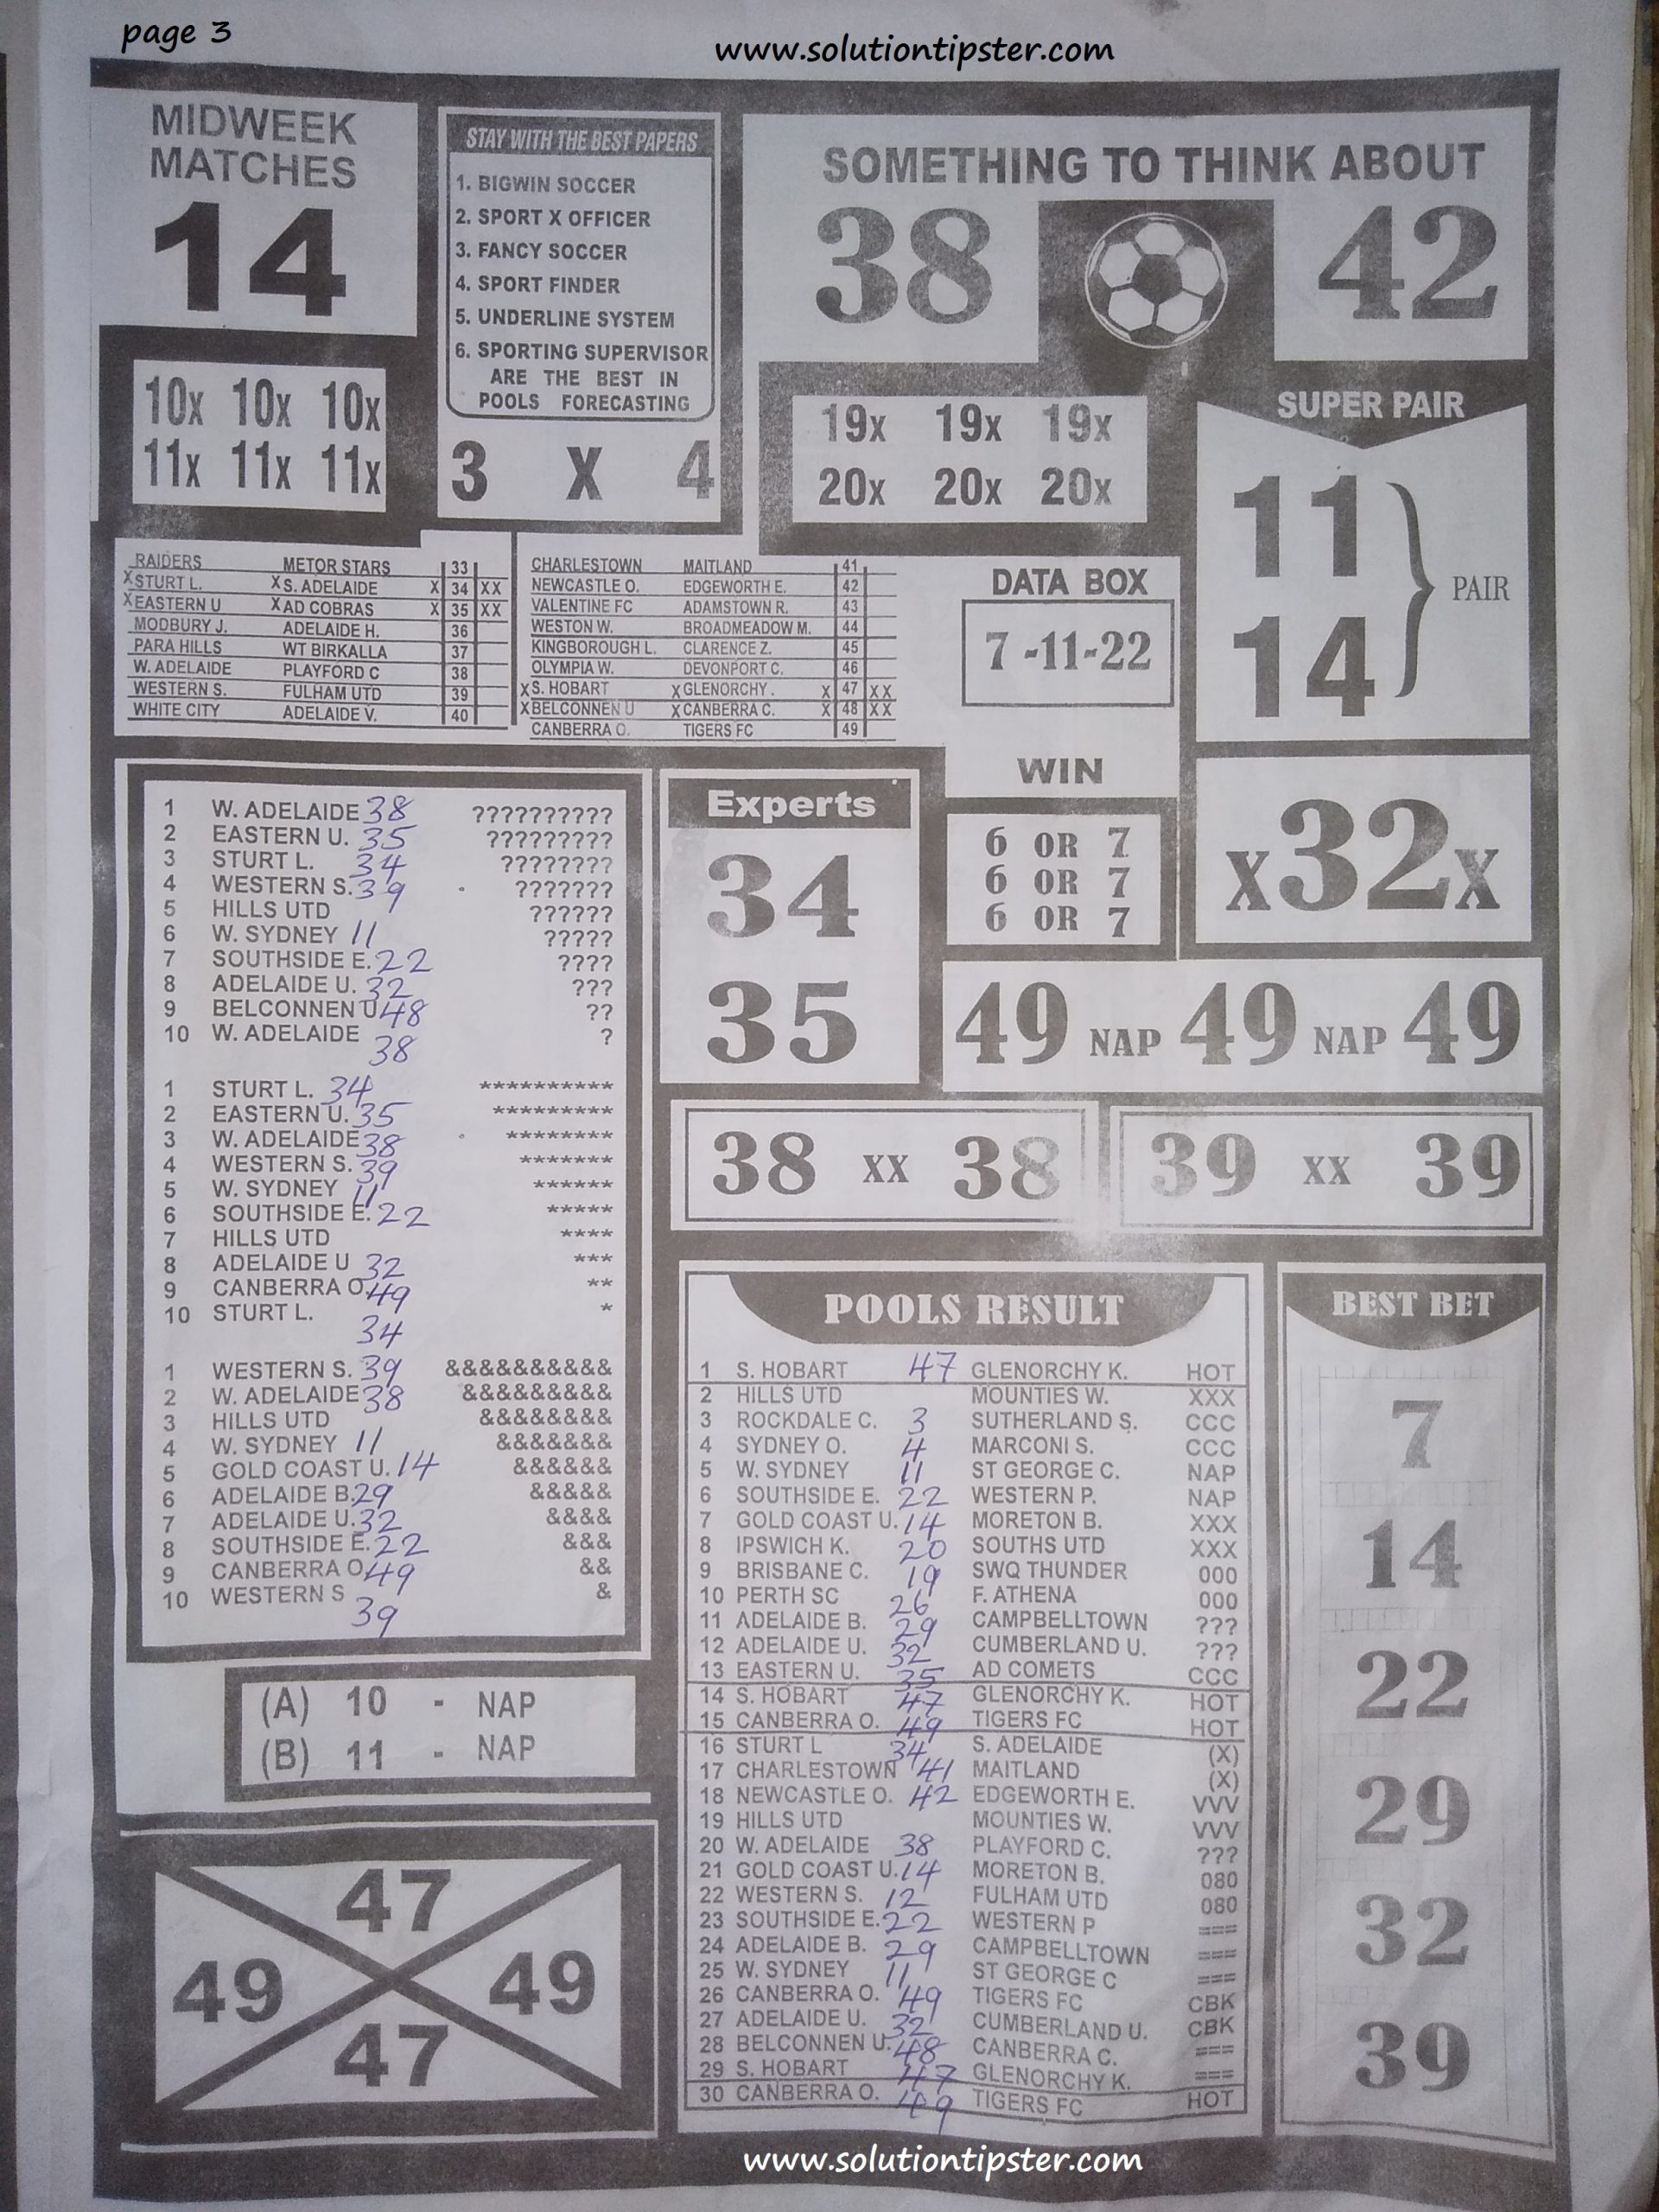 page 3
www.solutiontipster.com
MIDWEEK
MATCHES
14
10x 10x 10x
11x 11x 11x
STAY WITH THE BEST PAPERS
1. BIGWIN SOCCER
2. SPORT X OFFICER
3. FANCY SOCCER
4. SPORT FINDER
5. UNDERLINE SYSTEM
6. SPORTING SUPERVISOR
ARE THE BEST IN
POOLS FORECASTING
3 X 4
SOMETHING TO THINK ABOUT
38 42
19x 19x 19x
20x 20x 20x
SUPER PAIR
11
14
PAIR
RAIDERS METOR STARS 33
X STURT L. X S. ADELAIDE X 34 XX
X EASTERN U X AD COBRAS X 35 XX
MODBURY J. ADELAIDE H. 36
PARA HILLS WT BIRKALLA 37
W. ADELAIDE PLAYFORD C 38
WESTERN S. FULHAM UTD 39
WHITE CITY ADELAIDE V. 40
CHARLESTOWN MAITLAND 41
NEWCASTLE O. EDGEWORTH E. 42
VALENTINE FC ADAMSTOWN R. 43
WESTON W. BROADMEADOW M. 44
KINGBOROUGH L. CLARENCE Z. 45
OLYMPIA W. DEVONPORT C. 46
X S. HOBART X GLENORCHY . X 47 XX
X BELCONNEN U X CANBERRA C. X 48 XX
CANBERRA O. TIGERS FC 49
DATA BOX
7 -11-22
WIN
6 OR 7
6 OR 7
6 OR 7
X32X
1 W. ADELAIDE 38 ??????????
2 EASTERN U. 35 ?????????
3 STURT L. 34 ????????
4 WESTERN S. 39 ???????
5 HILLS UTD ??????
6 W. SYDNEY 11 ?????
7 SOUTHSIDE E. 22 ????
8 ADELAIDE U. 32 ???
9 BELCONNEN U 48 ??
10 W. ADELAIDE 38 ?
1 STURT L. 34 **********
2 EASTERN U. 35 *********
3 W. ADELAIDE 38 ********
4 WESTERN S. 39 *******
5 W. SYDNEY 11 ******
6 SOUTHSIDE E. 22 *****
7 HILLS UTD ****
8 ADELAIDE U 32 ***
9 CANBERRA O. 49 **
10 STURT L. 34 *
1 WESTERN S. 39 &&&&&&&&&&
2 W. ADELAIDE 38 &&&&&&&&&
3 HILLS UTD &&&&&&&&
4 W. SYDNEY 11 &&&&&&&
5 GOLD COAST U. 14 &&&&&&
6 ADELAIDE B. 29 &&&&&
7 ADELAIDE U. 32 &&&&
8 SOUTHSIDE E. 22 &&&
9 CANBERRA O. 49 &&
10 WESTERN S 39 &
Experts
34
35
49 NAP 49 NAP 49
38 XX 38
39 XX 39
(A) 10 - NAP
(B) 11 - NAP
47
49 49
47
POOLS RESULT
1 S. HOBART 47 GLENORCHY K. HOT
2 HILLS UTD MOUNTIES W. XXX
3 ROCKDALE C. 3 SUTHERLAND S. CCC
4 SYDNEY O. 4 MARCONI S. CCC
5 W. SYDNEY 11 ST GEORGE C. NAP
6 SOUTHSIDE E. 22 WESTERN P. NAP
7 GOLD COAST U. 14 MORETON B. XXX
8 IPSWICH K. 20 SOUTHS UTD XXX
9 BRISBANE C. 19 SWQ THUNDER 000
10 PERTH SC 26 F. ATHENA 000
11 ADELAIDE B. 29 CAMPBELLTOWN ???
12 ADELAIDE U. 32 CUMBERLAND U. ???
13 EASTERN U. 35 AD COMETS CCC
14 S. HOBART 47 GLENORCHY K. HOT
15 CANBERRA O. 49 TIGERS FC HOT
16 STURT L 34 S. ADELAIDE (X)
17 CHARLESTOWN 41 MAITLAND (X)
18 NEWCASTLE O. 42 EDGEWORTH E. VVV
19 HILLS UTD MOUNTIES W. VVV
20 W. ADELAIDE 38 PLAYFORD C. ???
21 GOLD COAST U. 14 MORETON B. 080
22 WESTERN S. 12 FULHAM UTD 080
23 SOUTHSIDE E. 22 WESTERN P ===
24 ADELAIDE B. 29 CAMPBELLTOWN ===
25 W. SYDNEY 11 ST GEORGE C ===
26 CANBERRA O. 49 TIGERS FC CBK
27 ADELAIDE U. 32 CUMBERLAND U. CBK
28 BELCONNEN U. 48 CANBERRA C. ===
29 S. HOBART 47 GLENORCHY K. ===
30 CANBERRA O. 49 TIGERS FC HOT
BEST BET
7
14
22
29
32
39
www.solutiontipster.com